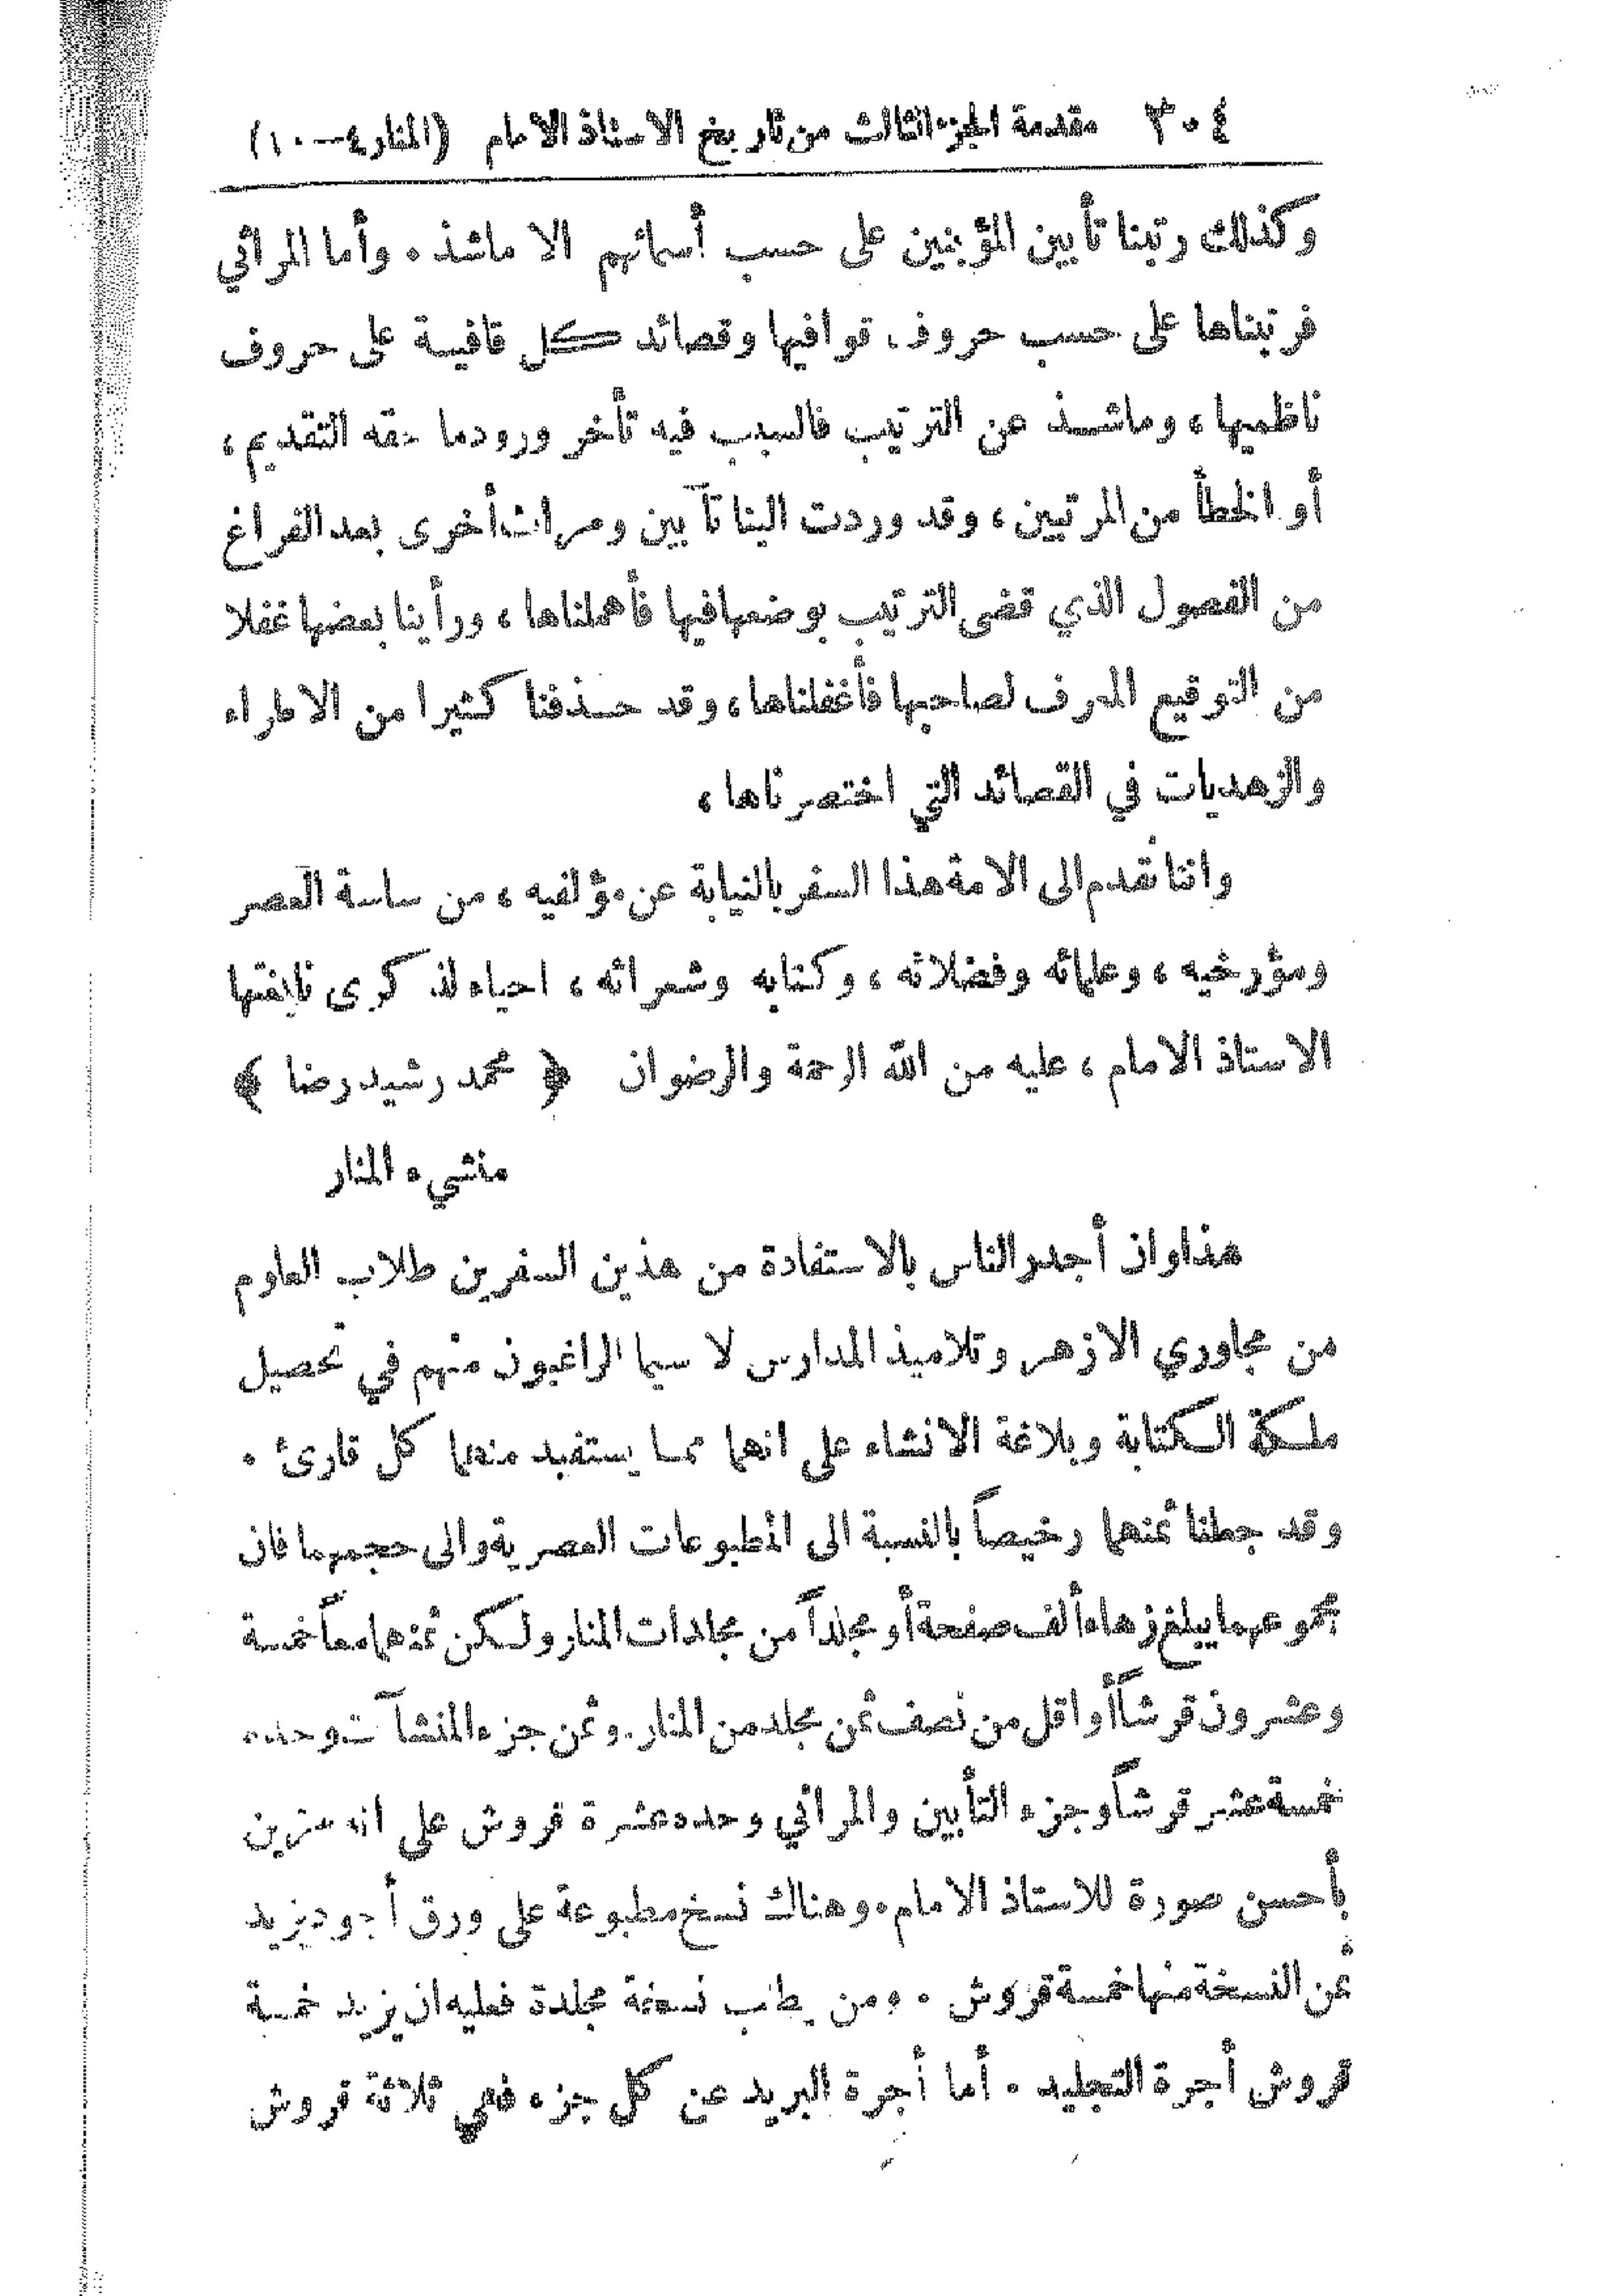 ٣٠٤ مقدمة الجزء الثالث من تاريخ الاستاذ الامام (المنار ٤—١٠)
وكذلك رتبنا تأبين المؤبنين على حسب أسمائهم الا ماشذ . وأما المراثي
فرتبناها على حسب حروف قوافيها وقصائد كل قافية على حروف
ناظميها ، وماشذ عن الترتيب فالسبب فيه تأخر ورود ما حقه التقديم ،
أو الخطأ من المرتبين ، وقد وردت الينا تآبين ومراث أخرى بعد الفراغ
من الفصول الذي قضى الترتيب بوضعها فيها فأهملناها ، ورأينا بعضها غفلا
من التوقيع المعرف لصاحبها فأغفلناها ، وقد حذفنا كثيرا من الاطراء
والزهديات في القصائد التي اختصرناها ،
واننا نقدم الى الامة هذا السفر بالنيابة عن مؤلفيه ، من ساسة العصر
ومؤرخيه ، وعلمائه وفضلائه ، وكتابه وشعرائه ، احياء لذكرى نابغتها
الاستاذ الامام ، عليه من الله الرحمة والرضوان ﴿ محمد رشيد رضا ﴾
منشيء المنار
هذا وان أجدر الناس بالاستفادة من هذين السفرين طلاب العلوم
من مجاوري الازهر وتلاميذ المدارس لا سيما الراغبون منهم في تحصيل
ملكة الكتابة وبلاغة الانشاء على انهما مما يستفيد منهما كل قارئ .
وقد جعلنا ثمنهما رخيصاً بالنسبة الى المطبوعات العصرية والى حجمهما فان
مجموعهما يبلغ زهاء ألف صفحة أو مجلداً من مجلدات المنار ولكن ثمنهما معاً خمسة
وعشرون قرشاً أو اقل من نصف ثمن مجلد من المنار . وثمن جزء المنشآت وحده
خمسة عشر قرشاً وجزء التأبين والمراثي وحده عشرة قروش على انه مزين
بأحسن صورة للاستاذ الامام . وهناك نسخ مطبوعة على ورق أجود يزيد
ثمن النسخة منها خمسة قروش . ومن يطلب نسخة مجلدة فعليه ان يزيد خمسة
قروش أجرة التجليد . أما أجرة البريد عن كل جزء فهي ثلاثة قروش